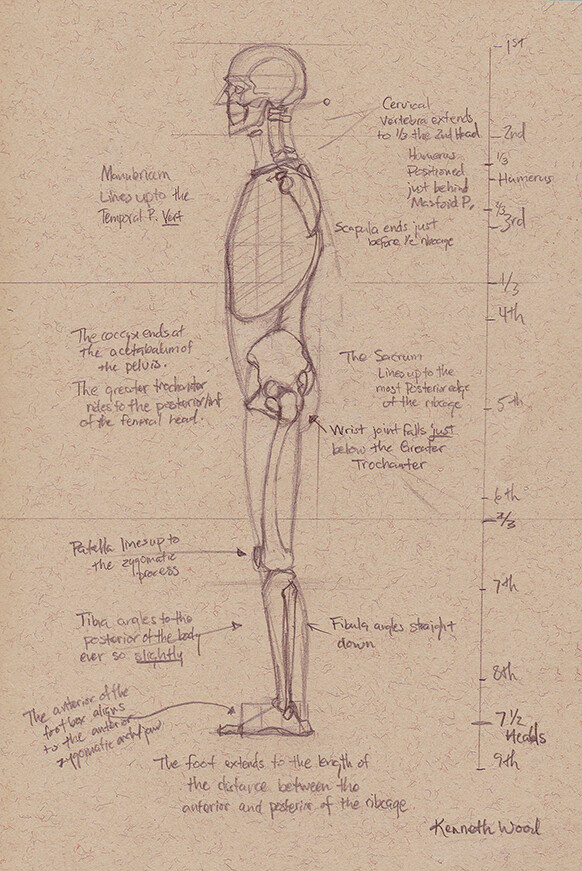 1ST
Cervical
Vertebra extends
to 1/3 the 2nd Head
2nd
1/3
Humerus
Humerus
Positioned
just behind
Mastoid P.
2/3
3rd
Manubrium
Lines up to the
Temporal P. Vert
Scapula ends just
before 1/2 ribcage
1/3
4th
The coccyx ends at
the acetabulum of
the pelvis.
The greater trochanter
rides to the posterior/inf
of the femoral head.
The Sacrum
Lines up to the
most Posterior edge
of the ribcage
5th
Wrist joint falls just
below the Greater
Trochanter
6th
2/3
Patella lines up to
the zygomatic
process
7th
Tibia angles to the
posterior of the body
ever so slightly
Fibula angles straight
down
8th
The anterior of the
foot box aligns
to the anterior
zygomatic arch/jaw
7 1/2
Heads
9th
The foot extends to the length of
the distance between the
anterior and posterior of the ribcage
Kenneth Wood